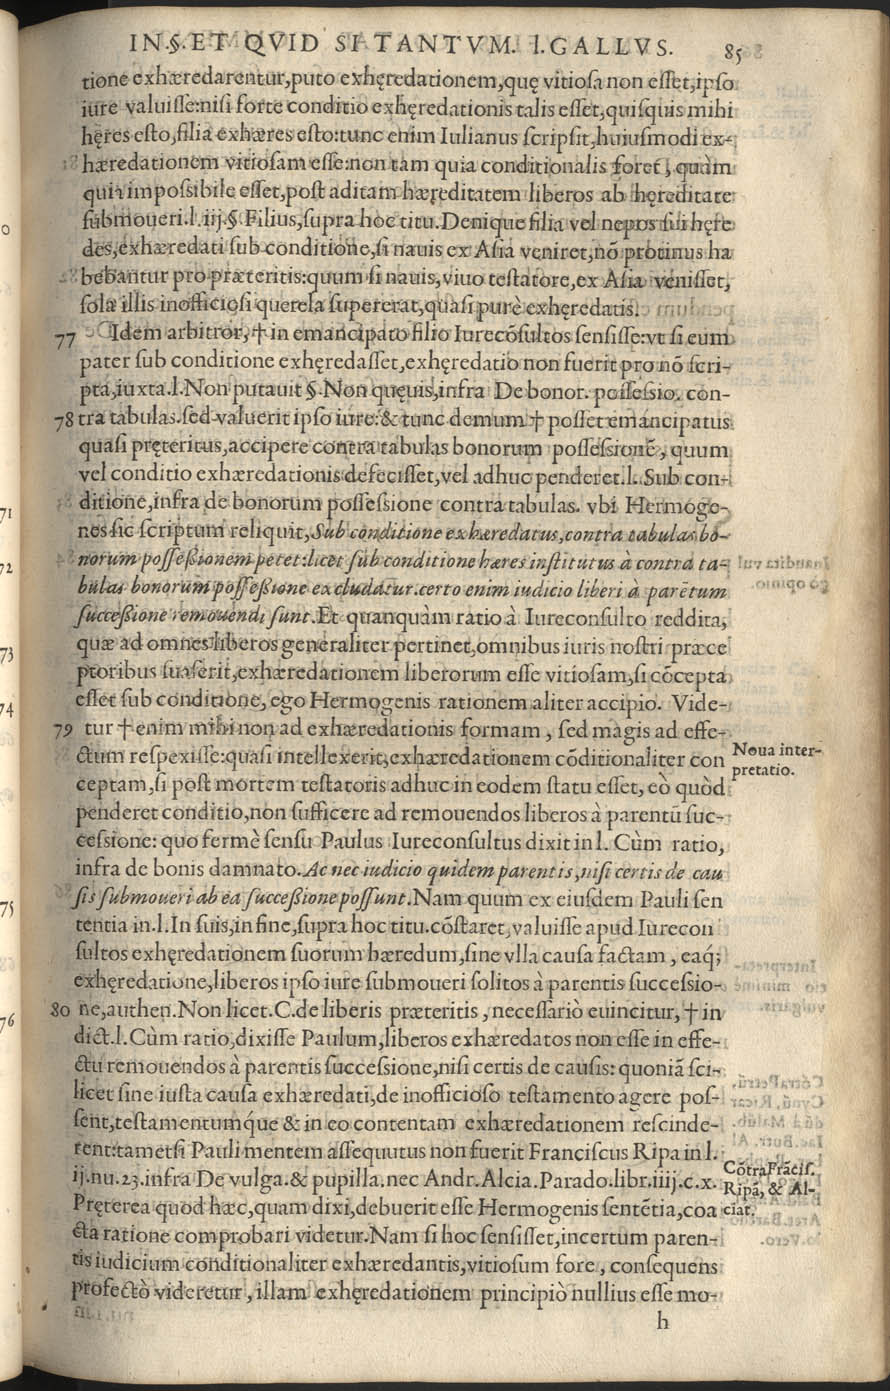 IN.§.ET QVID SI TANTVM. l.GALLVS. 85
tione exhæredarentur,puto exhęredationem,quę vitiosa non esset,ipso
iure valuisse:nisi forte conditio exhęredationis talis esset,quisquis mihi
hęres esto,filia exhæres esto:tunc enim Iulianus scripsit,huiusmodi ex-
hæredationem vitiosam esse:non tam quia conditionalis foret, quàm
quia impossibile esset,post aditam hæreditatem liberos ab hęreditate
submoueri.l.iij.§.Filius,supra hoc titu.Denique filia vel nepos sui hęre
des,exhæredati sub conditione,si nauis ex Asia veniret,nō protinus ha
bebantur pro præteritis:quum si nauis,viuo testatore,ex Asia venisset,
sola illis inofficiosi querela supererat,quasi purè exhęredatis.
77 Idem arbitror,† in emancipato filio Iurecōsultos sensisse:vt si eum
pater sub conditione exhęredasset,exhęredatio non fuerit pro nō scri-
pta,iuxta.l.Non putauit §.Non quęuis,infra De bonor. possessio. con-
78 tra tabulas.sed valuerit ipso iure:& tunc demum † posset emancipatus
quasi pręteritus,accipere contra tabulas bonorum possessionē, quum
vel conditio exhæredationis defecisset,vel adhuc penderet.l.Sub con-
ditione,infra de bonorum possessione contra tabulas. vbi Hermoge-
nes sic scriptum reliquit,Sub conditione exhæredatus,contra tabulas bo-
norum possessionem petet:licet sub conditione hæres institutus à contra ta-
bulas bonorum possessione excludatur.certo enim iudicio liberi à parētum
successione remouendi sunt.Et quanquàm ratio à Iureconsulto reddita,
quæ ad omnes liberos generaliter pertinet,omnibus iuris nostri præce
ptoribus suaserit,exhæredationem liberorum esse vitiosam,si cōcepta
esset sub conditione, ego Hermogenis rationem aliter accipio. Vide-
79 tur † enim mihi non ad exhæredationis formam, sed magis ad effe-
ctum respexisse:quasi intellexerit,exhæredationem cōditionaliter con
Noua inter-
pretatio.
ceptam,si post mortem testatoris adhuc in eodem statu esset, eò quòd
penderet conditio,non sufficere ad remouendos liberos à parentū suc-
cessione: quo fermè sensu Paulus Iureconsultus dixit in l. Cùm ratio,
infra de bonis damnato.Ac nec iudicio quidem parentis,nisi certis de cau
sis submoueri ab ea successione possunt.Nam quum ex eiusdem Pauli sen
tentia in.l.In suis,in fine,supra hoc titu.cōstaret,valuisse apud Iurecon
sultos exhęredationem suorum hæredum,sine vlla causa factam, eaq́;
exhęredatione,liberos ipso iure submoueri solitos à parentis successio-
80 ne,authen.Non licet.C.de liberis præteritis, necessariò euincitur, † in
dict.l.Cùm ratio,dixisse Paulum,liberos exhæredatos non esse in effe-
ctu remouendos à parentis successione,nisi certis de causis: quoniā sci-
licet sine iusta causa exhæredati,de inofficioso testamento agere pos-
sent,testamentumq́ue & in eo contentam exhæredationem rescinde-
rent:tametsi Pauli mentem assequutus non fuerit Franciscus Ripa in l.
ij.nu.23.infra De vulga.& pupilla.nec Andr. Alcia.Parado.libr.iiij.c.x.
Cōtra Frācis.
Ripā, & Al-
ciat.
Pręterea quòd hæc,quam dixi,debuerit esse Hermogenis sentētia,coa
cta ratione comprobari videtur.Nam si hoc sensisset,incertum paren-
tis iudicium conditionaliter exhæredantis,vitiosum fore, consequens
profectò videretur, illam exhęredationem principiò nullius esse mo-
h